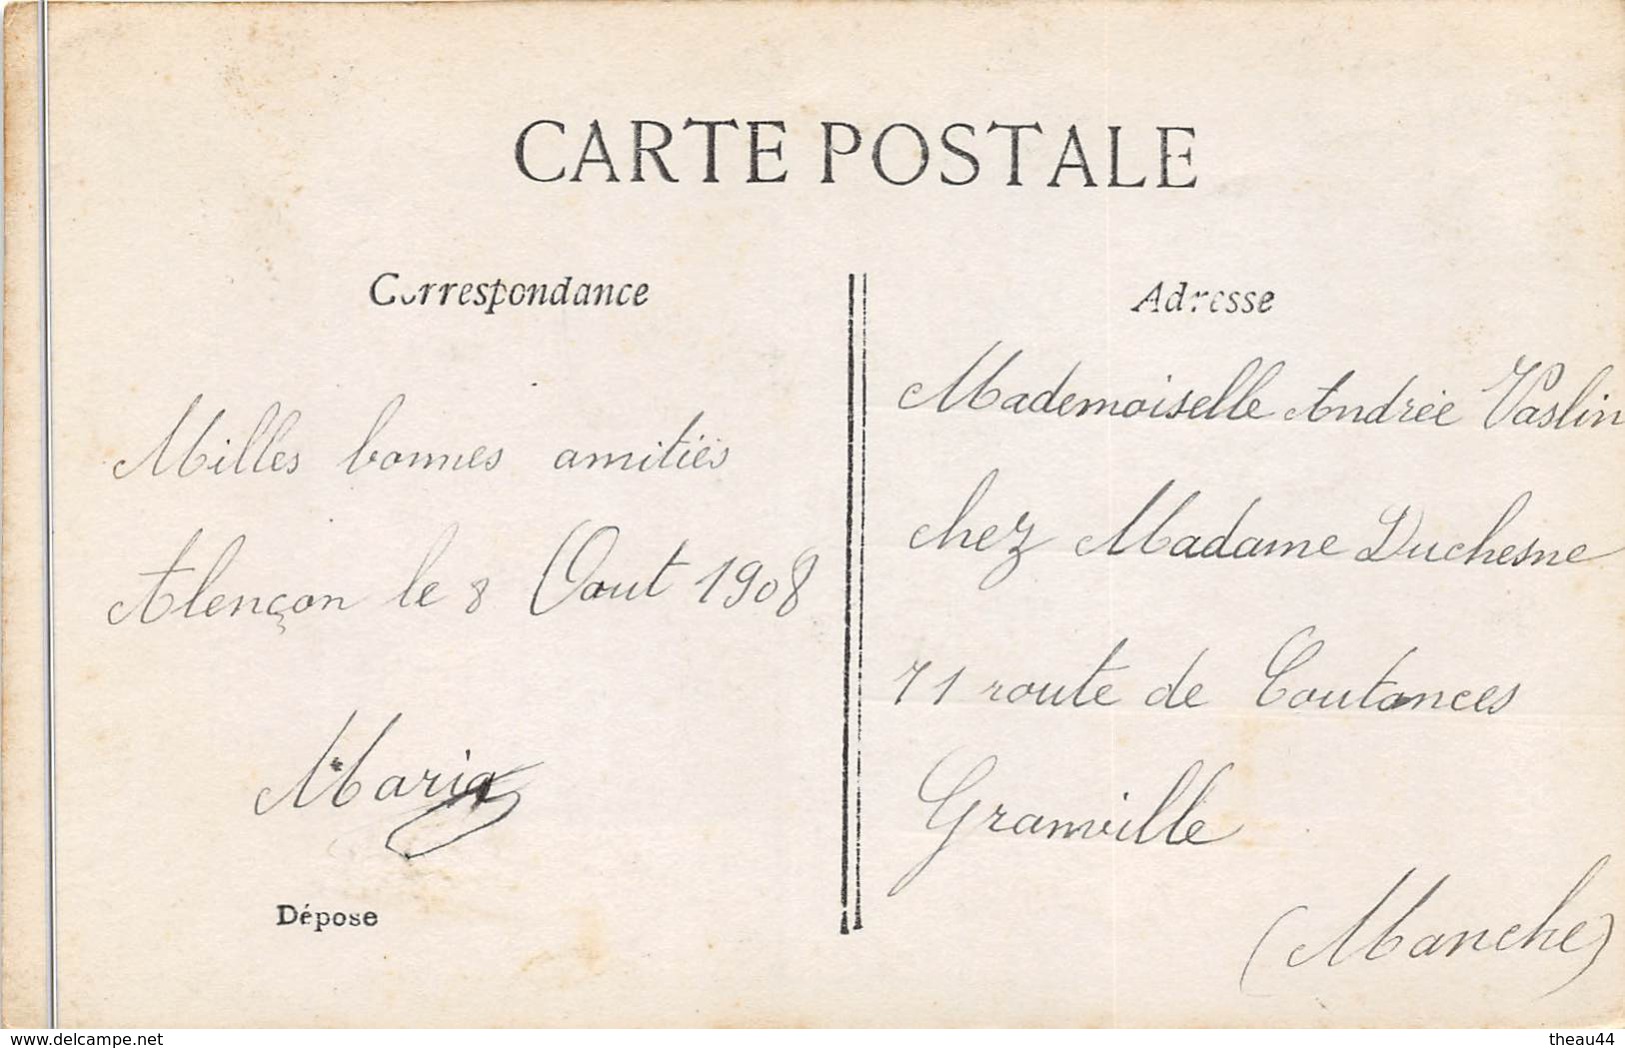 CARTE POSTALE
Correspondance
Milles bonnes amitiés
Alençon le 8 Aout 1908
Maria
Dépose
Adresse
Mademoiselle Andrée Vaslin
chez Madame Duchesne
71 route de Coutances
Granville
(Manche)
delcampe.net
theau44